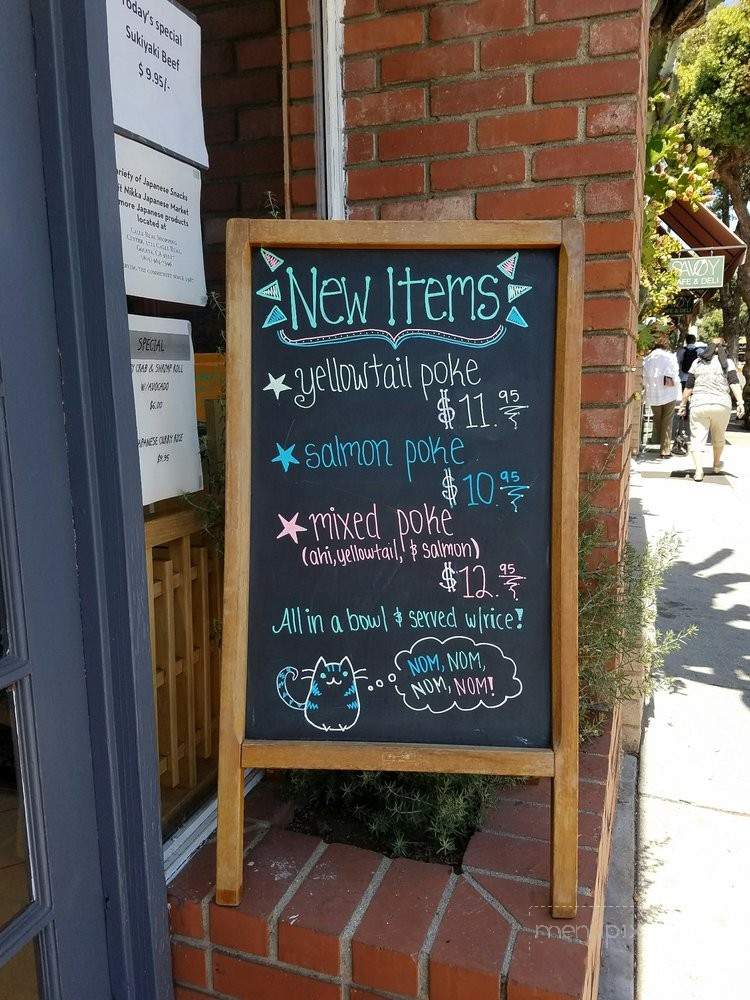 Today's special
Sukiyaki Beef
$ 9.95/-
Variety of Japanese Snacks
Nikka Japanese Market
more Japanese products
located at
Calle Real Shopping
SPECIAL
CRAB & SHRIMP ROLL
W/AVOCADO
$6.00
JAPANESE CURRY RICE
$9.95
New Items
yellowtail poke
$11.95
salmon poke
$10.95
mixed poke
(ahi, yellowtail, & salmon)
$12.95
All in a bowl & served w/rice!
NOM, NOM,
NOM, NOM!
SAVOY
CAFE & DELI